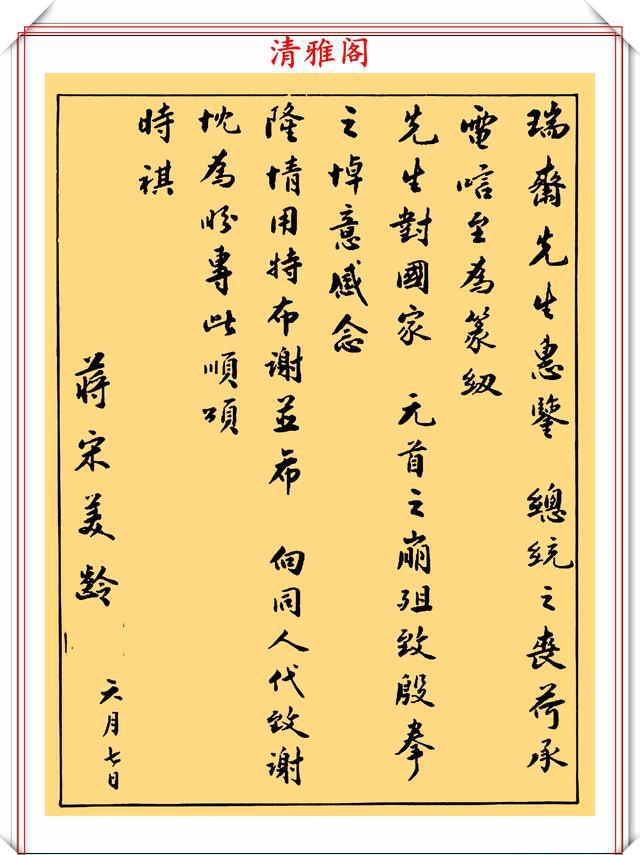 清雅阁
瑞齋先生惠鑒　總統之喪荷承
電唁至為篆紉
先生對國家　元首之崩殂致殷拳
之悼意感念
隆情用特布謝並希　向同人代致謝
忱為盼專此順頌
時祺
蔣宋美齡
六月七日